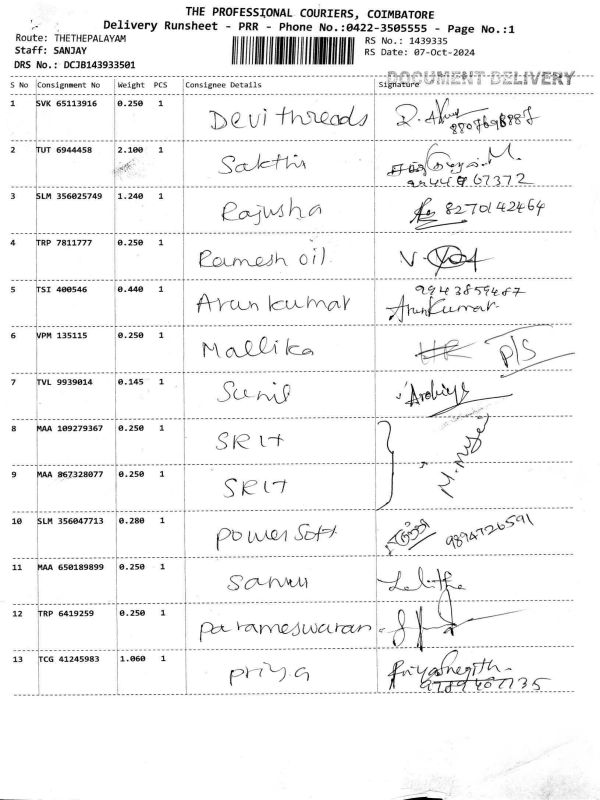 THE PROFESSIONAL COURIERS, COIMBATORE
Delivery Runsheet - PRR - Phone No.:0422-3505555 - Page No.:1
Route: THETHEPALAYAM RS No.: 1439335
Staff: SANJAY RS Date: 07-Oct-2024
DRS No.: DCJB143933501
DOCUMENT DELIVERY
S No Consignment No Weight PCS Consignee Details Signature
1 SVK 65113916 0.250 1 Devi threads
2 TUT 6944458 2.100 1 Sakthi
3 SLM 356025749 1.240 1 Rajusha 8270142464
4 TRP 7811777 0.250 1 Ramesh oil
5 TSI 400546 0.440 1 Arun kumar 9943859487
ArunKumar
6 VPM 135115 0.250 1 Mallika HR P/S
7 TVL 9939014 0.145 1 Sunil
8 MAA 109279367 0.250 1 SRIT
9 MAA 867328077 0.250 1 SRIT
10 SLM 356047713 0.280 1 Power Soft 9894726591
11 MAA 650189899 0.250 1
12 TRP 6419259 0.250 1 Parameswaran
13 TCG 41245983 1.060 1 Priya